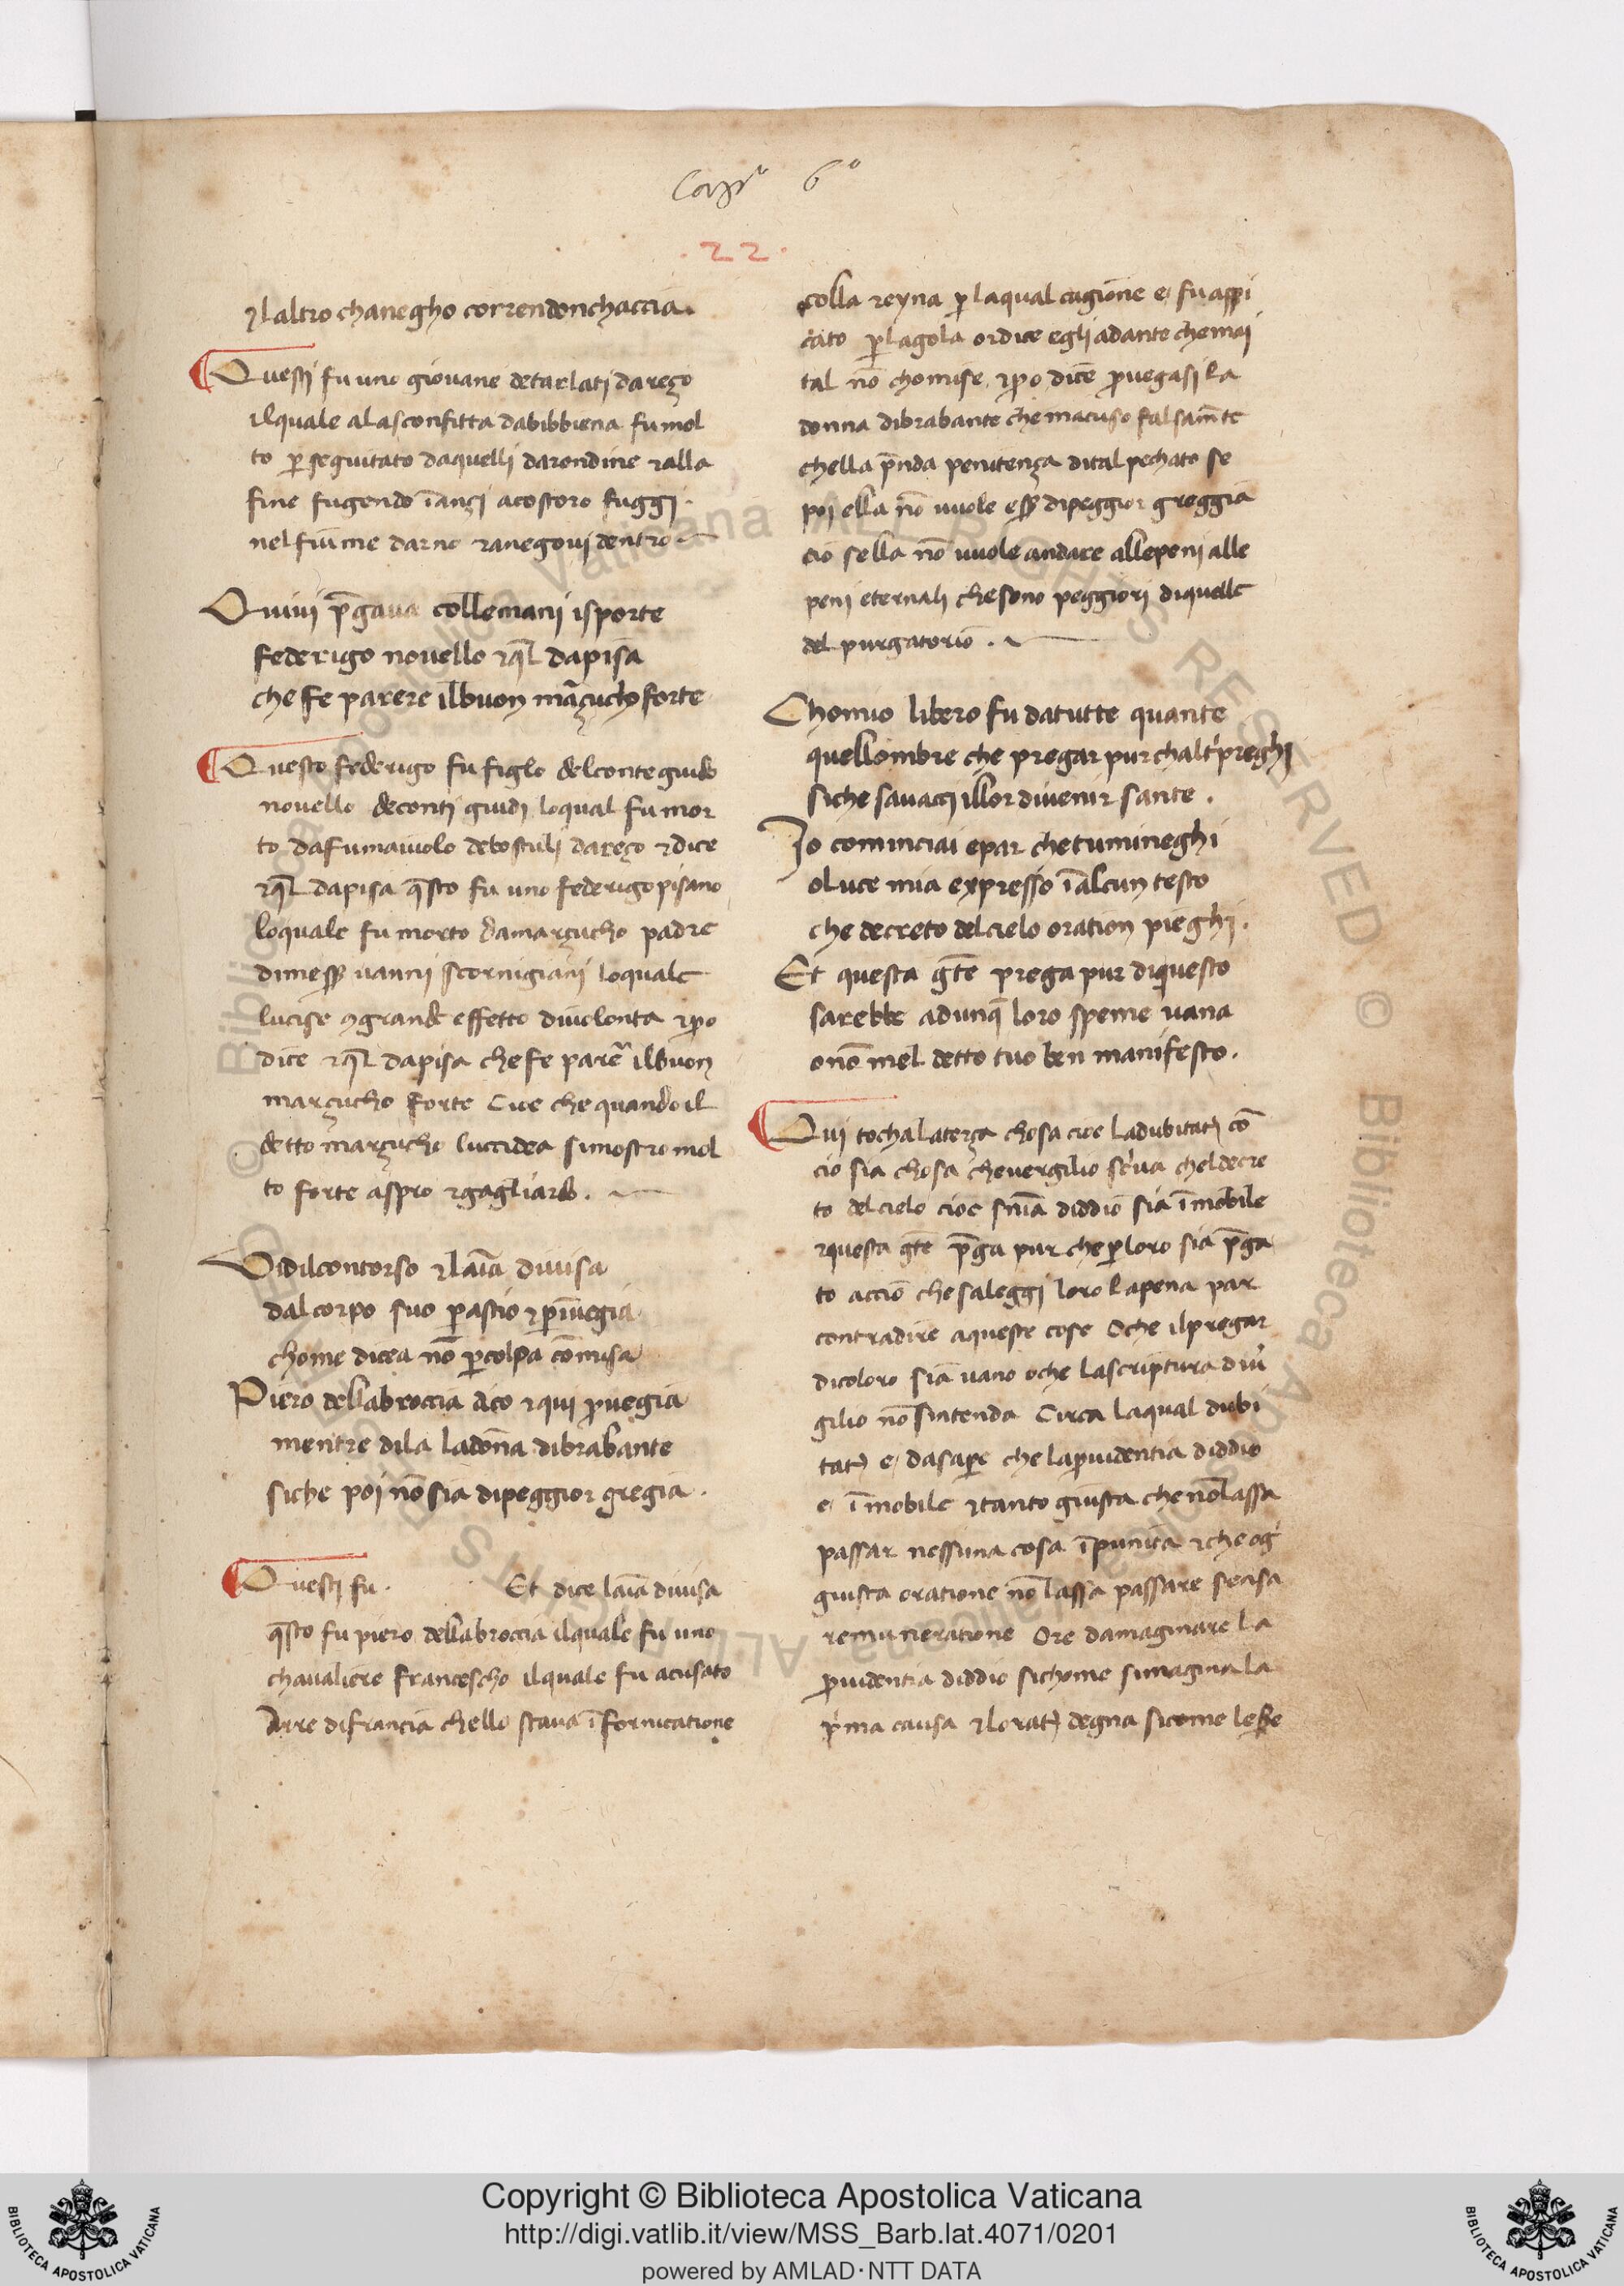 Cap.º 6º
. 22 .
⁊laltro chanegho correndonchaccia.
Questi fu uno giouane detarlati dareço
ilquale alasconfitta dabibbiena fumol
to ꝑseguitato daquelli darondine ⁊alla
fine fugendo īançi acostoro fuggi.
nel fiume darno ⁊anegoui dentro
Quiui p̄gaua collemani isporte
federigo nouello ⁊q̄l dapisa
che fe parere ilbuon març̣ucho forte
Questo federigo fu figlo delconteguido
nouello deconti guidi loqual fu mor
to dafumaiuolo debostuli dareço ⁊dice
⁊q̄l dapisa q̄sto fu uno federigo pisano
loquale fu morto damarçucho padre
dimess̄ uanni scornigiani loquale
lucise ꝯgrande effetto diuolonta ⁊ꝑo
dice ⁊q̄l dapisa che fe parer̄ ilbuon
marçucho forte Cioe che quandoil
detto marçucho luccidea simostro mol
to forte aspro ⁊gagliardo.
Vidilcontorso ⁊laīa diuisa
dalcorpo suo ꝑastio ⁊ꝑīuegia
chome dicea nō ꝑcolpa cōmisa
Piero dellabroccia dico ⁊qui ꝓuegia
mentre dila ladōna dibrabante
siche poi nōsia dipeggior gregia.
Questi fu. Et dice laīa diuisa
q̄sto fu piero dellabroccia ilquale fu uno
chaualiere francescho ilquale fu acusato
Arre difrancia chello staua ī fornicatione
colla reyna ꝑ laqual cagione e fu appi
cato ꝑlagola ordice egli adante chemai
tal nō chomise ⁊ꝑo dice ꝓuegasi la
donna dibrabante che macuso falsam̄te
chella p̄nda penitença dital pechato se
poi ella nō uuole ess̄ dipeggior greggia
cio sella nō uuole andare allepeni alle
peni eternali chesono peggiori diquelle
del purgatorio.
Chomio libero fu datutte quante
quellombre che pregar pur chaltrị preghi
siche sauacci illor diuenir sante.
Io cominciai epar chetumineghi
oluce mia expresso ī alcun testo
che decreto delcielo oration pieghi.
Et questa gēte prega pur diquesto
sarebbe adunq̄ loro speme uana
onō mel detto tuo ben manifesto.
Qui tocha laterça chosa cioe ladubitatꝫ cō
cio sia chosa cheuergilio scriua cheldecre
to delcielo cioe snīa diddio sia īmobile
⁊questa gēte p̄ga pur che ꝑloro sia p̄ga
to accio che saleggi loro lapena par
contradire aqueste cose Oche ilpregar
dicoloro sia uano oche lascriptura diuir
gilio nōsintenda Circa laqual dubi
tatꝫ e dasape che laꝓuidentia diddio
e īmobile ⁊tanto giusta che nō lassa
passar nessuna cosa īpunita ⁊che og
giusta oratione nō lassa passare sença
remuneratione Ore damaginare la
ꝓuidentia diddio sichome simagina la
prima causa ⁊loratꝫ degna sicome leffe